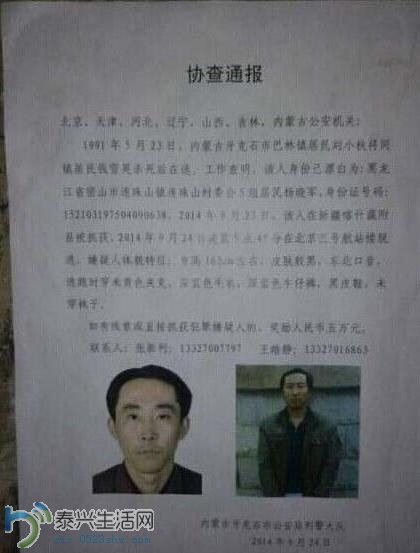 协查通报
北京、天津、河北、辽宁、山西、吉林、内蒙古公安机关：
1991年5月23日，内蒙古牙克石市巴林镇居民刘小秋将同
镇居民钱雷英杀死后在逃。工作查明，该人身份已漂白为：黑龙
江省密山市连珠山镇连珠山村委会5组居民杨晓军，身份证号码：
152103197504090638。2014年8月23日，该人在新疆喀什疏附
县被抓获。2014年9月24日凌晨5点45分在北京三号航站楼脱
逃。嫌疑人体貌特征：身高162cm左右，皮肤较黑，东北口音，
逃跑时穿米黄色夹克，深蓝色毛衣，深蓝色牛仔裤，黑皮鞋，未
穿袜子。
如有线索或直接抓获犯罪嫌疑人的，奖励人民币五万元。
联系人：张泰利：13327007797 王皓静：13327016863
内蒙古牙克石市公安局刑警大队
2014年9月24日
泰兴生活网